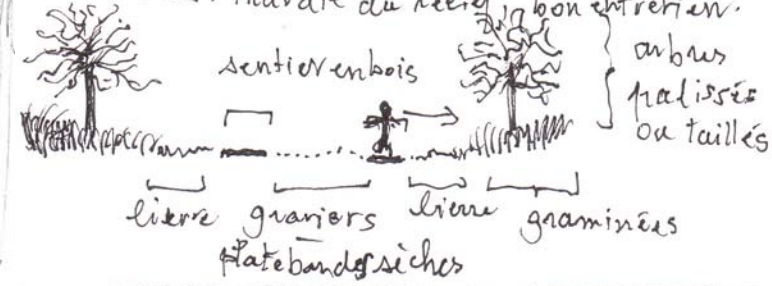 du bon entretien.
sentier en bois
arbres
palissés
ou taillés
lierre graviers lierre graminées
platebandes sèches